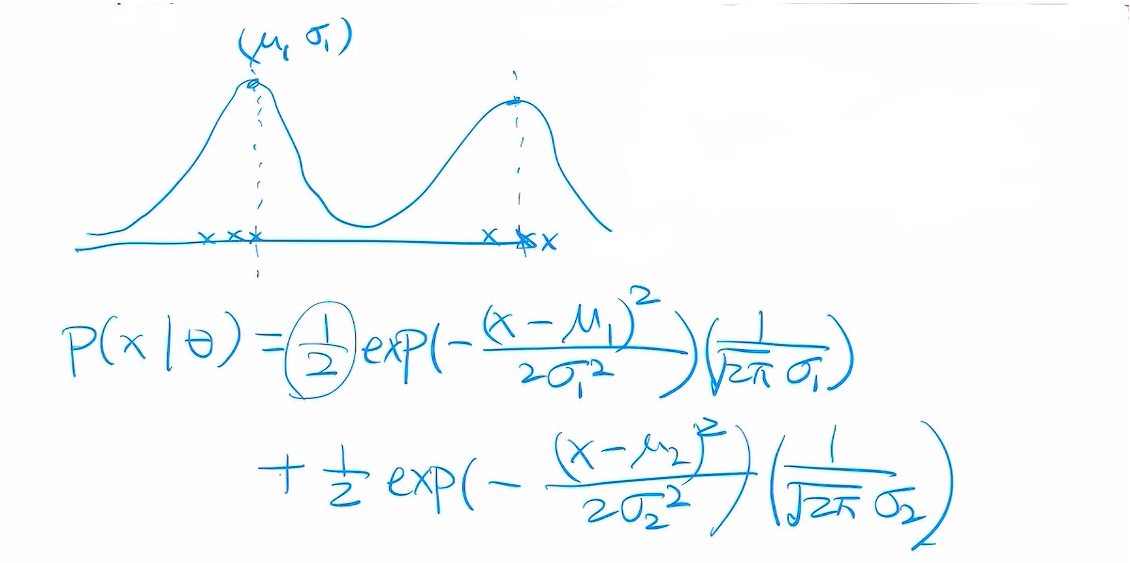 (μ₁ σ₁)
x x x x x x
P(x|θ) = (1/2) exp(-(x-μ₁)²/2σ₁²)(1/√2π σ₁)
+ 1/2 exp(-(x-μ₂)²/2σ₂²)(1/√2π σ₂)